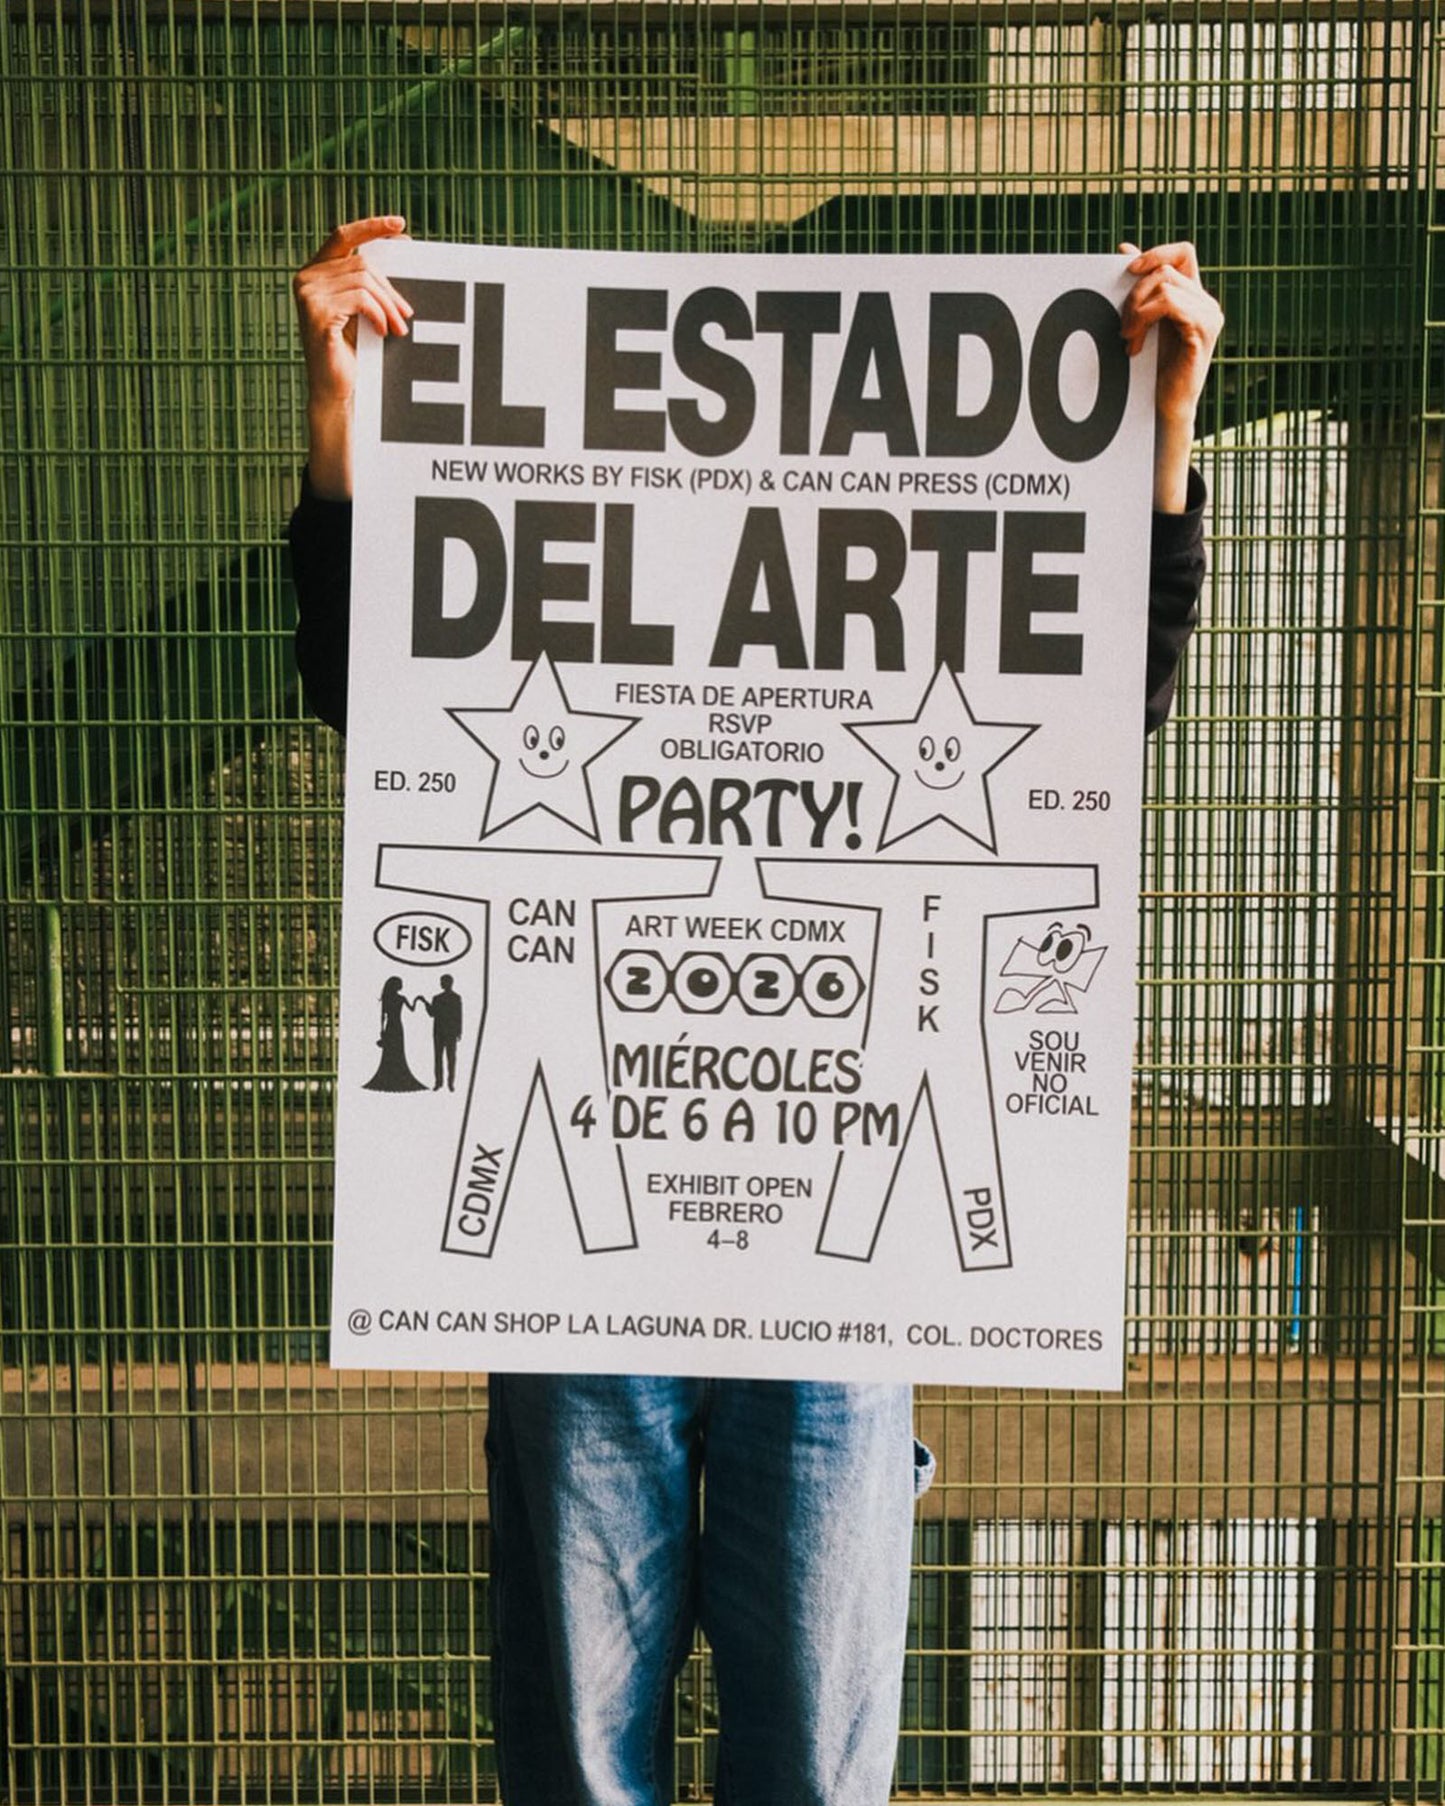 EL ESTADO
NEW WORKS BY FISK (PDX) & CAN CAN PRESS (CDMX)
DEL ARTE
FIESTA DE APERTURA
RSVP
OBLIGATORIO
PARTY!
ED. 250
ED. 250
CAN
CAN
CDMX
FISK
ART WEEK CDMX
2026
MIÉRCOLES
4 DE 6 A 10 PM
EXHIBIT OPEN
FEBRERO
4–8
F
I
S
K
PDX
SOU
VENIR
NO
OFICIAL
@ CAN CAN SHOP LA LAGUNA DR. LUCIO #181, COL. DOCTORES